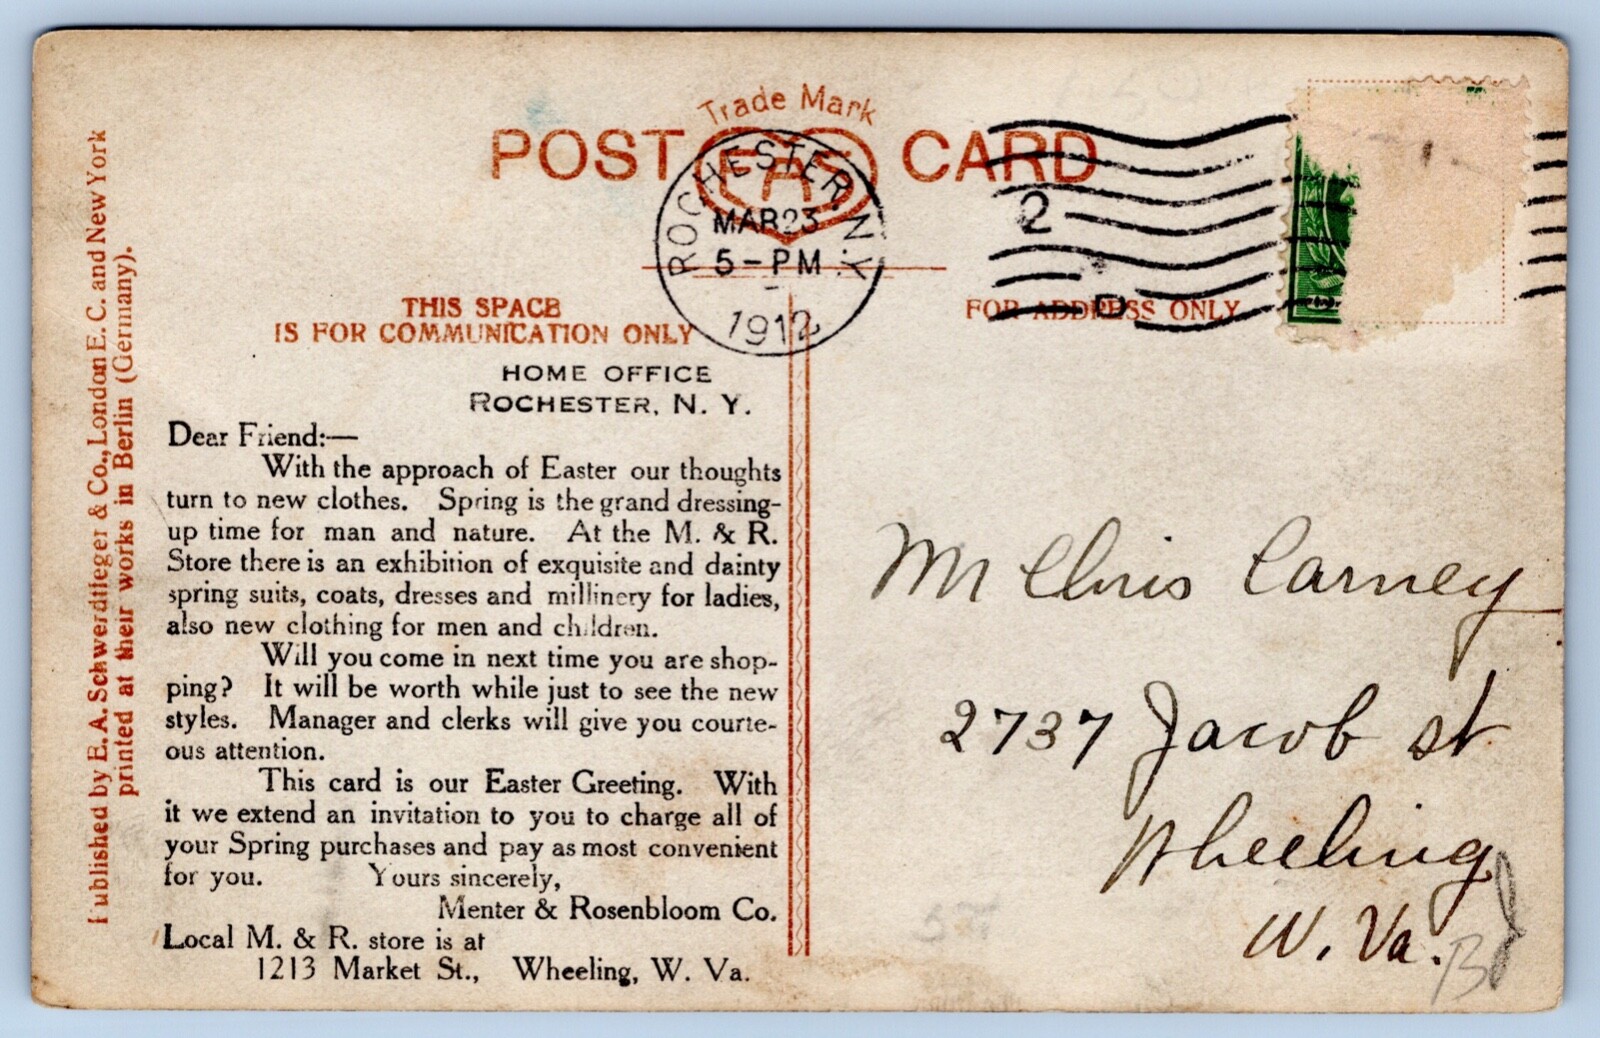 Trade Mark
POST EAS CARD
ROCHESTER, N.Y.
MAR 23
5-PM
1912
2
D
THIS SPACE
IS FOR COMMUNICATION ONLY
FOR ADDRESS ONLY
Published by E. A. Schwerdtfeger & Co., London E. C. and New York
printed at their works in Berlin (Germany).
HOME OFFICE
ROCHESTER, N. Y.
Dear Friend:—
With the approach of Easter our thoughts
turn to new clothes. Spring is the grand dressing-
up time for man and nature. At the M. & R.
Store there is an exhibition of exquisite and dainty
spring suits, coats, dresses and millinery for ladies,
also new clothing for men and children.
Will you come in next time you are shop-
ping? It will be worth while just to see the new
styles. Manager and clerks will give you courte-
ous attention.
This card is our Easter Greeting. With
it we extend an invitation to you to charge all of
your Spring purchases and pay as most convenient
for you. Yours sincerely,
Menter & Rosenbloom Co.
Local M. & R. store is at
1213 Market St., Wheeling, W. Va.
Mr Chris Carney
2737 Jacob st
Wheeling
W. Va.